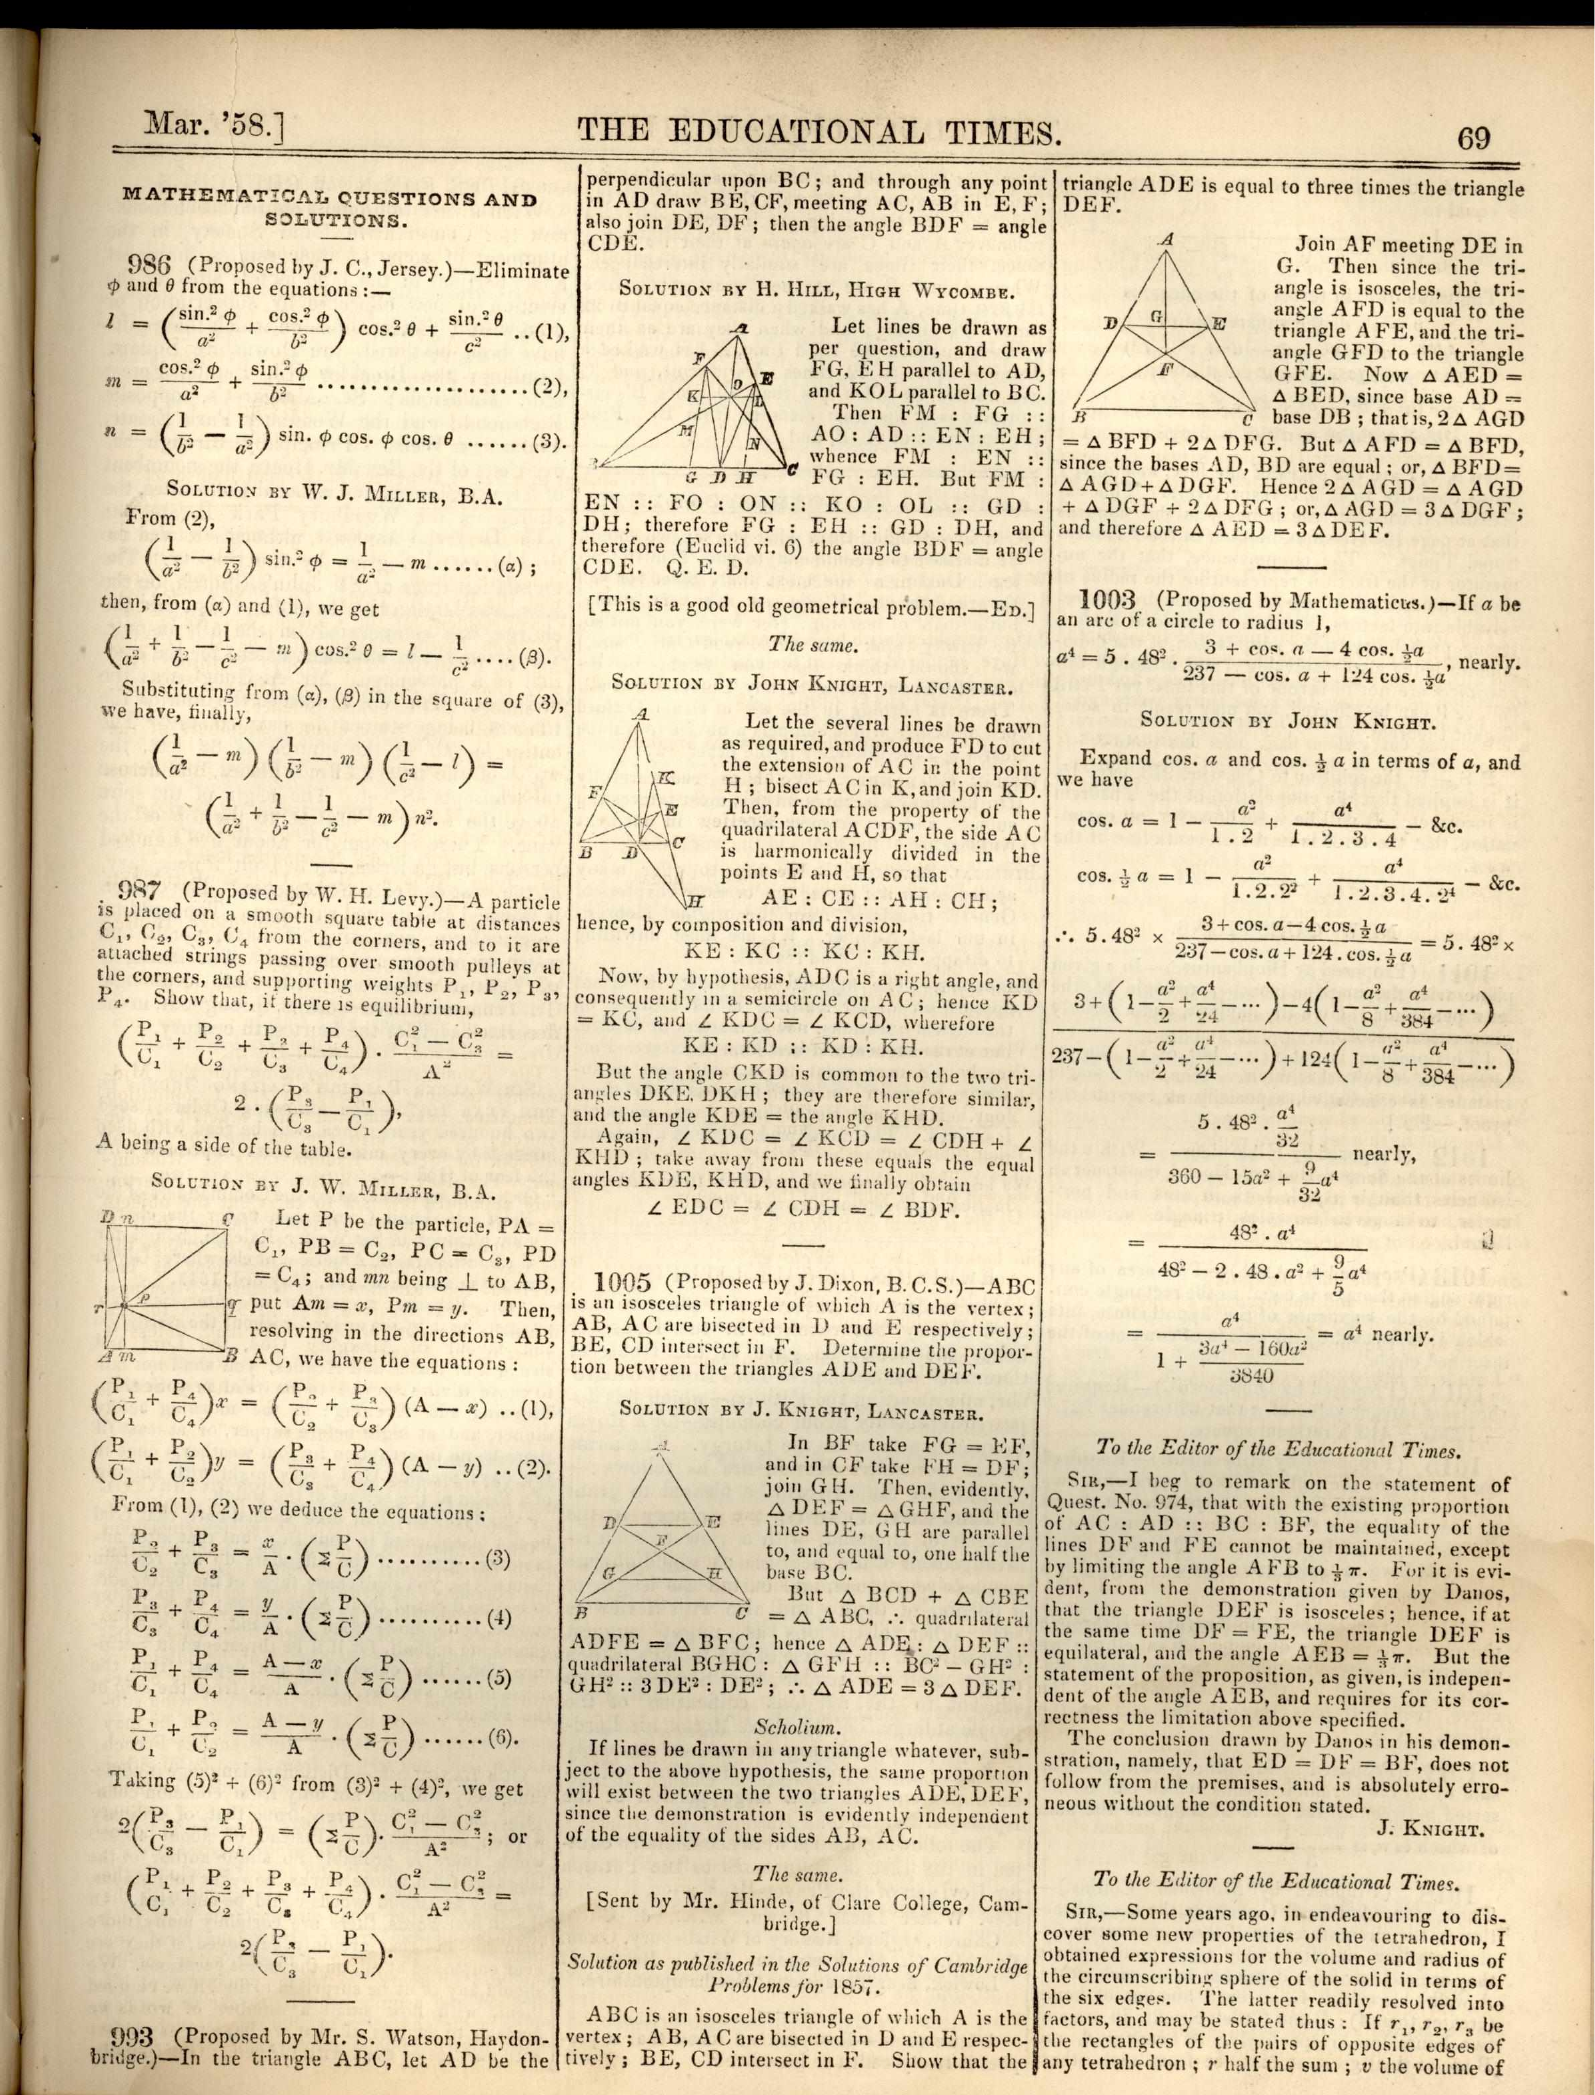 Mar. '58.]
THE EDUCATIONAL TIMES.
69
MATHEMATICAL QUESTIONS AND
SOLUTIONS.
986 (Proposed by J. C., Jersey.)—Eliminate
φ and θ from the equations :—
l = (sin.² φ / a² + cos.² φ / b²) cos.² θ + sin.² θ / c² ..(1),
m = cos.² φ / a² + sin.² φ / b² ....................(2),
n = (1/b² − 1/a²) sin. φ cos. φ cos. θ ......(3).
SOLUTION BY W. J. MILLER, B.A.
From (2),
(1/a² − 1/b²) sin.² φ = 1/a² − m ......(α) ;
then, from (α) and (1), we get
(1/a² + 1/b² − 1/c² − m) cos.² θ = l − 1/c² ....(β).
Substituting from (α), (β) in the square of (3),
we have, finally,
(1/a² − m) (1/b² − m) (1/c² − l) =
(1/a² + 1/b² − 1/c² − m) n².
987 (Proposed by W. H. Levy.)—A particle
is placed on a smooth square table at distances
C₁, C₂, C₃, C₄ from the corners, and to it are
attached strings passing over smooth pulleys at
the corners, and supporting weights P₁, P₂, P₃,
P₄. Show that, if there is equilibrium,
(P₁/C₁ + P₂/C₂ + P₃/C₃ + P₄/C₄) . (C₁² − C₃²)/A² =
2 . (P₃/C₃ − P₁/C₁),
A being a side of the table.
SOLUTION BY J. W. MILLER, B.A.
D n C
r P q
A m B
Let P be the particle, PA =
C₁, PB = C₂, PC = C₃, PD
= C₄ ; and mn being ⊥ to AB,
put Am = x, Pm = y. Then,
resolving in the directions AB,
AC, we have the equations :
(P₁/C₁ + P₄/C₄) x = (P₂/C₂ + P₃/C₃) (A − x) ..(1),
(P₁/C₁ + P₂/C₂) y = (P₃/C₃ + P₄/C₄) (A − y) ..(2).
From (1), (2) we deduce the equations :
P₂/C₂ + P₃/C₃ = x/A . (Σ P/C) ..........(3)
P₃/C₃ + P₄/C₄ = y/A . (Σ P/C) ..........(4)
P₁/C₁ + P₄/C₄ = (A − x)/A . (Σ P/C) ......(5)
P₁/C₁ + P₂/C₂ = (A − y)/A . (Σ P/C) ......(6).
Taking (5)² + (6)² from (3)² + (4)², we get
2(P₃/C₃ − P₁/C₁) = (Σ P/C) . (C₁² − C₃²)/A² ; or
(P₁/C₁ + P₂/C₂ + P₃/C₃ + P₄/C₄) . (C₁² − C₃²)/A² =
2(P₃/C₃ − P₁/C₁).
993 (Proposed by Mr. S. Watson, Haydon-
bridge.)—In the triangle ABC, let AD be the
perpendicular upon BC ; and through any point
in AD draw BE, CF, meeting AC, AB in E, F ;
also join DE, DF ; then the angle BDF = angle
CDE.
SOLUTION BY H. HILL, HIGH WYCOMBE.
A
F O E
K L
M N
G D H C
Let lines be drawn as
per question, and draw
FG, EH parallel to AD,
and KOL parallel to BC.
Then FM : FG ::
AO : AD :: EN : EH ;
whence FM : EN ::
FG : EH. But FM :
EN :: FO : ON :: KO : OL :: GD :
DH ; therefore FG : EH :: GD : DH, and
therefore (Euclid vi. 6) the angle BDF = angle
CDE. Q. E. D.
[This is a good old geometrical problem.—ED.]
The same.
SOLUTION BY JOHN KNIGHT, LANCASTER.
A
K
F E
B D C
H
Let the several lines be drawn
as required, and produce FD to cut
the extension of AC in the point
H ; bisect AC in K, and join KD.
Then, from the property of the
quadrilateral ACDF, the side AC
is harmonically divided in the
points E and H, so that
AE : CE :: AH : CH ;
hence, by composition and division,
KE : KC :: KC : KH.
Now, by hypothesis, ADC is a right angle, and
consequently in a semicircle on AC ; hence KD
= KC, and ∠ KDC = ∠ KCD, wherefore
KE : KD :: KD : KH.
But the angle CKD is common to the two tri-
angles DKE, DKH ; they are therefore similar,
and the angle KDE = the angle KHD.
Again, ∠ KDC = ∠ KCD = ∠ CDH + ∠
KHD ; take away from these equals the equal
angles KDE, KHD, and we finally obtain
∠ EDC = ∠ CDH = ∠ BDF.
1005 (Proposed by J. Dixon, B. C. S.)—ABC
is an isosceles triangle of which A is the vertex ;
AB, AC are bisected in D and E respectively ;
BE, CD intersect in F. Determine the propor-
tion between the triangles ADE and DEF.
SOLUTION BY J. KNIGHT, LANCASTER.
A
D E
F
G H
B C
In BF take FG = EF,
and in CF take FH = DF ;
join GH. Then, evidently,
△ DEF = △ GHF, and the
lines DE, GH are parallel
to, and equal to, one half the
base BC.
But △ BCD + △ CBE
= △ ABC, ∴ quadrilateral
ADFE = △ BFC ; hence △ ADE : △ DEF ::
quadrilateral BGHC : △ GFH :: BC² − GH² :
GH² :: 3DE² : DE² ; ∴ △ ADE = 3 △ DEF.
Scholium.
If lines be drawn in any triangle whatever, sub-
ject to the above hypothesis, the same proportion
will exist between the two triangles ADE, DEF,
since the demonstration is evidently independent
of the equality of the sides AB, AC.
The same.
[Sent by Mr. Hinde, of Clare College, Cam-
bridge.]
Solution as published in the Solutions of Cambridge
Problems for 1857.
ABC is an isosceles triangle of which A is the
vertex ; AB, AC are bisected in D and E respec-
tively ; BE, CD intersect in F. Show that the
triangle ADE is equal to three times the triangle
DEF.
A
D G E
F
B C
Join AF meeting DE in
G. Then since the tri-
angle is isosceles, the tri-
angle AFD is equal to the
triangle AFE, and the tri-
angle GFD to the triangle
GFE. Now △ AED =
△ BED, since base AD =
base DB ; that is, 2 △ AGD
= △ BFD + 2 △ DFG. But △ AFD = △ BFD,
since the bases AD, BD are equal ; or, △ BFD =
△ AGD + △ DGF. Hence 2 △ AGD = △ AGD
+ △ DGF + 2 △ DFG ; or, △ AGD = 3 △ DGF ;
and therefore △ AED = 3 △ DEF.
1003 (Proposed by Mathematicus.)—If a be
an arc of a circle to radius 1,
a⁴ = 5 . 48² . (3 + cos. a — 4 cos. ½a)/(237 — cos. a + 124 cos. ½a), nearly.
SOLUTION BY JOHN KNIGHT.
Expand cos. a and cos. ½ a in terms of a, and
we have
cos. a = 1 − a²/(1 . 2) + a⁴/(1 . 2 . 3 . 4) − &c.
cos. ½ a = 1 − a²/(1.2.2²) + a⁴/(1.2.3.4.2⁴) − &c.
∴ 5.48² × (3 + cos. a − 4 cos. ½ a)/(237 − cos. a + 124 . cos. ½ a) = 5 . 48² ×
3 + (1 − a²/2 + a⁴/24 − ...) − 4(1 − a²/8 + a⁴/384 − ...)
237 − (1 − a²/2 + a⁴/24 − ...) + 124(1 − a²/8 + a⁴/384 − ...)
= (5 . 48² . a⁴/32)/(360 − 15a² + 9/32 a⁴) nearly,
= (48² . a⁴)/(48² − 2 . 48 . a² + 9/5 a⁴)
= a⁴/(1 + (3a⁴ − 160a²)/3840) = a⁴ nearly.
To the Editor of the Educational Times.
SIR,—I beg to remark on the statement of
Quest. No. 974, that with the existing proportion
of AC : AD :: BC : BF, the equality of the
lines DF and FE cannot be maintained, except
by limiting the angle AFB to ⅓ π. For it is evi-
dent, from the demonstration given by Danos,
that the triangle DEF is isosceles ; hence, if at
the same time DF = FE, the triangle DEF is
equilateral, and the angle AEB = ⅓ π. But the
statement of the proposition, as given, is indepen-
dent of the angle AEB, and requires for its cor-
rectness the limitation above specified.
The conclusion drawn by Danos in his demon-
stration, namely, that ED = DF = BF, does not
follow from the premises, and is absolutely erro-
neous without the condition stated.
J. KNIGHT.
To the Editor of the Educational Times.
SIR,—Some years ago, in endeavouring to dis-
cover some new properties of the tetrahedron, I
obtained expressions for the volume and radius of
the circumscribing sphere of the solid in terms of
the six edges. The latter readily resolved into
factors, and may be stated thus : If r₁, r₂, r₃ be
the rectangles of the pairs of opposite edges of
any tetrahedron ; r half the sum ; v the volume of